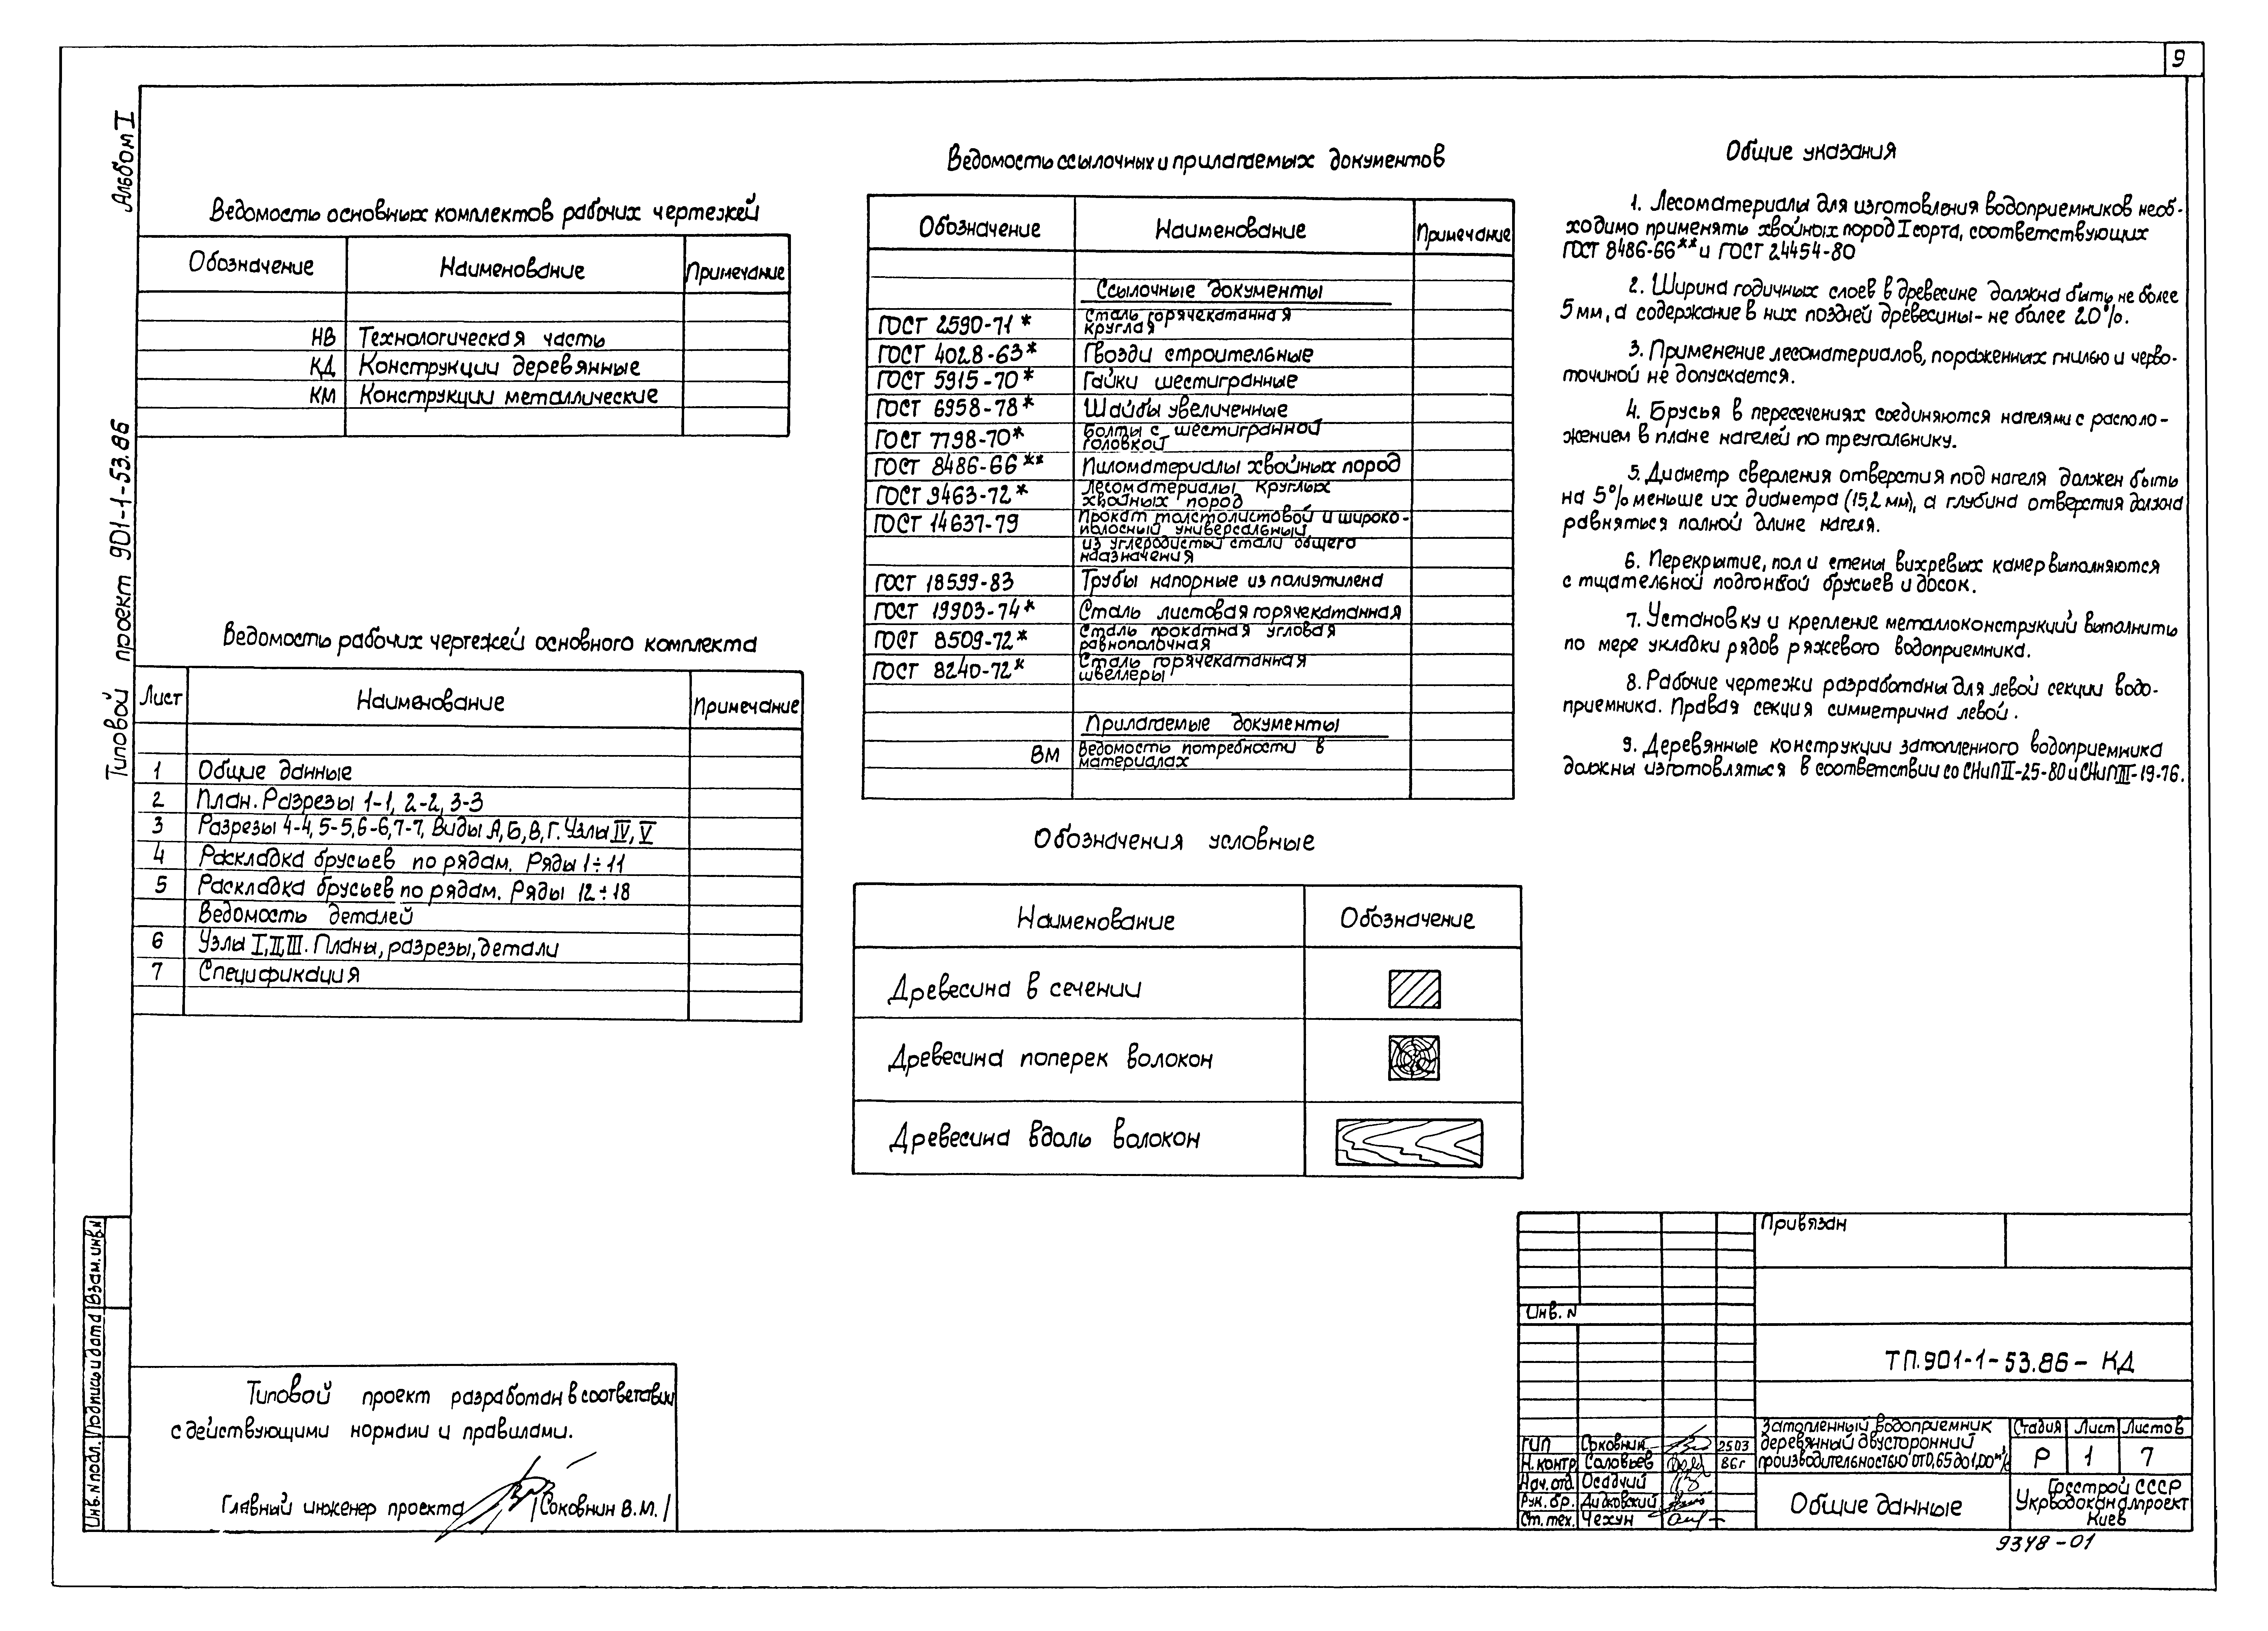 9
Альбом I
Типовой проект 901-1-53.86
Ведомость основных комплектов рабочих чертежей
Обозначение Наименование Примечание
НВ Технологическая часть
КД Конструкции деревянные
КМ Конструкции металлические
Ведомость рабочих чертежей основного комплекта
Лист Наименование Примечание
1 Общие данные
2 План. Разрезы 1-1, 2-2, 3-3
3 Разрезы 4-4, 5-5, 6-6, 7-7, Виды А, Б, В, Г. Узлы IV, V
4 Раскладка брусьев по рядам. Ряды 1÷11
5 Раскладка брусьев по рядам. Ряды 12÷18
Ведомость деталей
6 Узлы I, II, III. Планы, разрезы, детали
7 Спецификация
Ведомость ссылочных и прилагаемых документов
Обозначение Наименование Примечание
Ссылочные документы
ГОСТ 2590-71* Сталь горячекатанная
круглая
ГОСТ 4028-63* Гвозди строительные
ГОСТ 5915-70* Гайки шестигранные
ГОСТ 6958-78* Шайбы увеличенные
ГОСТ 7798-70* Болты с шестигранной
головкой
ГОСТ 8486-66** Пиломатериалы хвойных пород
ГОСТ 9463-72* Лесоматериалы круглых
хвойных пород
ГОСТ 14637-79 Прокат толстолистовой и широко-
полосный универсальный
из углеродистый стали общего
надзначения
ГОСТ 18599-83 Трубы напорные из полиэтилена
ГОСТ 19903-74* Сталь листовая горячекатанная
ГОСТ 8509-72* Сталь прокатная угловая
равнополочная
ГОСТ 8240-72* Сталь горячекатанная
швеллеры
Прилагаемые документы
ВМ Ведомость потребности в
материалах
Обозначения условные
Наименование Обозначение
Древесина в сечении
Древесина поперек волокон
Древесина вдоль волокон
Общие указания
1. Лесоматериалы для изготовления водоприемников необ-
ходимо применять хвойных пород I сорта, соответствующих
ГОСТ 8486-66** и ГОСТ 24454-80
2. Ширина годичных слоев в древесине должна быть не более
5 мм, а содержание в них поздней древесины - не более 20%.
3. Применение лесоматериалов, пораженных гнилью и черво-
точиной не допускается.
4. Брусья в пересечениях соединяются нагелями с располо-
жением в плане нагелей по треугольнику.
5. Диаметр сверления отверстия под нагеля должен быть
на 5% меньше их диаметра (15,2 мм), а глубина отверстия должна
равняться полной длине нагеля.
6. Перекрытие, пол и стены вихревых камер выполняются
с тщательной подгонкой брусьев и досок.
7. Установку и крепление металлоконструкций выполнить
по мере укладки рядов ряжевого водоприемника.
8. Рабочие чертежи разработаны для левой секции водо-
приемника. Правая секция симметрична левой.
9. Деревянные конструкции затопленного водоприемника
должны изготовляться в соответствии со СНиП II-25-80 и СНиП III-19-76.
Инв. N подл. Подпись и дата Взам. инв. N
Типовой проект разработан в соответсвии
с действующими нормами и правилами.
Главный инженер проекта /Соковнин В.М./
Привязан
Инв. N
ТП.901-1-53.86 - КД
ГИП Соковнин 2503
Н. контр Соловьев 86г
Нач. отд. Осадчий
Рук. бр. Дидковский
Ст. тех. Чехун
Затопленный водоприемник
деревянный двусторонний
производительностью от 0,65 до 1,00 м³/с
Стадия Лист Листов
Р 1 7
Общие данные
Госстрой СССР
Укрводоканалпроект
Киев
9348-01